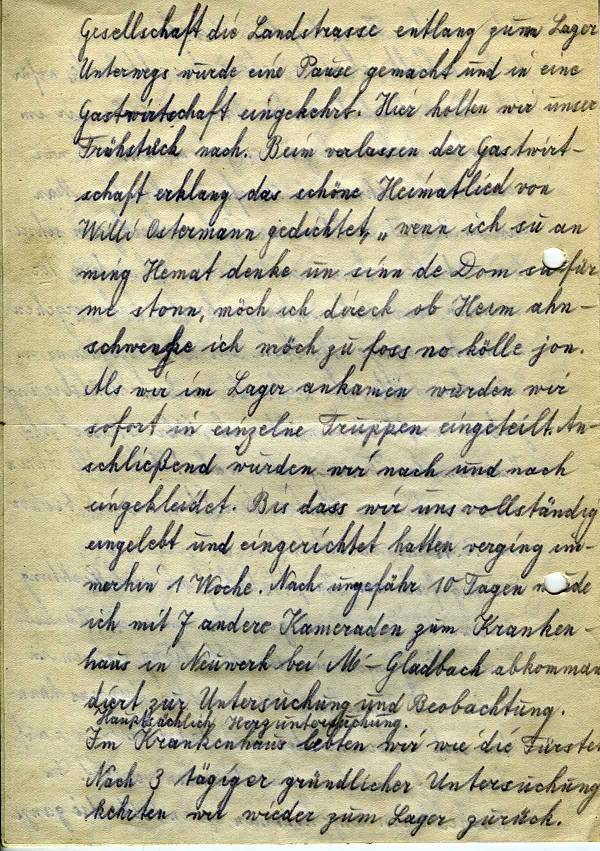 Gesellschaft die Landstrasse entlang zum Lager
Unterwegs wurde eine Pause gemacht und in eine
Gastwirtschaft eingekehrt. Hier holten wir unser
Frühstück nach. Beim verlassen der Gastwirt-
schaft erklang das schöne Heimatlied von
Willi Ostermann gedichtet, „wenn ich su an
ming Hemat denke un sinn de Dom su für
me stonn, möch ich direck ob Heim ahn-
schwenke ich möch zu foss no kölle jon.
Als wir im Lager ankamen wurden wir
sofort in einzelne Truppen eingeteilt. An-
schließend wurden wir nach und nach
eingekleidet. Bis dass wir uns vollständig
eingelebt und eingerichtet hatten verging im-
merhin 1 Woche. Nach ungefähr 10 Tagen wurde
ich mit 7 andere Kameraden zum Kranken-
haus in Neuwerk bei M-Gladbach abkomman
diert zur Untersuchung und Beobachtung.
Hauptsächlich Herzuntersuchung.
Im Krankenhaus lebten wir wie die Fürsten
Nach 3 tägiger gründlicher Untersuchung
kehrten wir wieder zum Lager zurück.